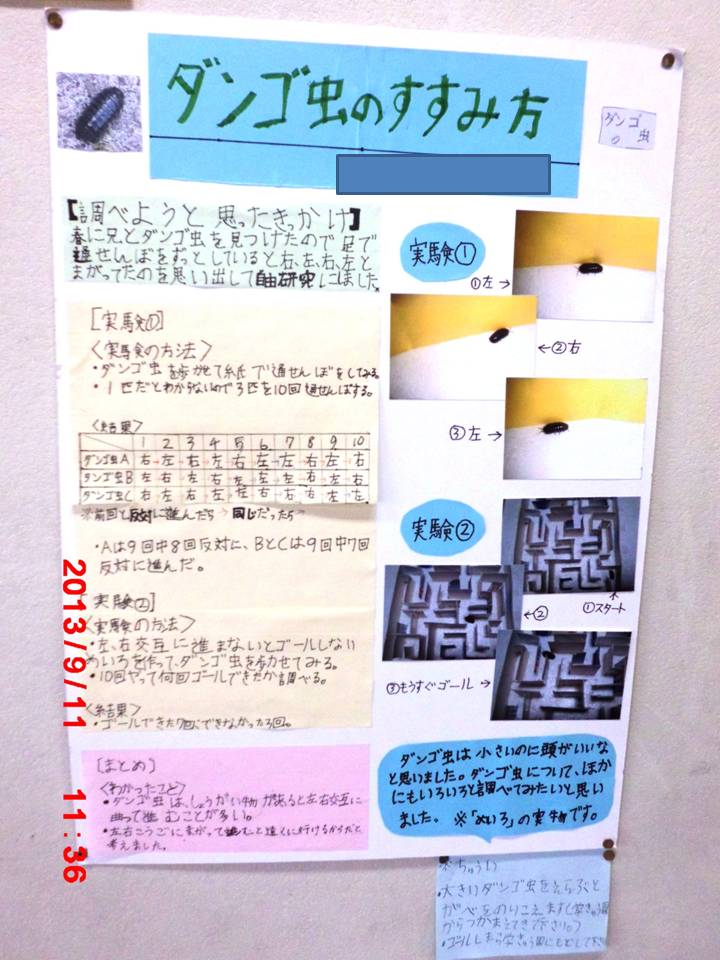 ダンゴ虫のすすみ方
ダンゴ
虫
【調べようと思ったきっかけ】
春に兄とダンゴ虫を見つけたので足で
通せんぼをずっとしていると右、左、右、左と
まがってたのを思い出して自由研究にしました。
[実験①]
〈実験の方法〉
・ダンゴ虫を歩かせて紙で通せんぼをしてみる。
・1匹だとわからないので3匹を10回通せんぼする。
〈結果〉
1 2 3 4 5 6 7 8 9 10
ダンゴ虫A 右 左 右 左 右 左 左 右 左 右
ダンゴ虫B 左 右 左 右 左 左 左 右 左 右
ダンゴ虫C 右 左 右 左 右 右 左
※前回と反対に進んだら→同じだったら→
・Aは9回中8回反対に、BとCは9回中7回
反対に進んだ。
[実験②]
〈実験の方法〉
・左、右交互に進まないとゴールしない
めいろを作って、ダンゴ虫を歩かせてみる。
・10回やって何回ゴールできたか調べる。
〈結果〉
・ゴールできた7回、できなかった3回。
[まとめ]
〈わかったこと〉
・ダンゴ虫は、しょうがい物があると左右交互に
曲って進むことが多い。
・左右こうごにまがって進むと遠くに行けるからだと
考えました。
実験①
①左→
←②右
③左→
実験②
①スタート
←②
③もうすぐゴール→
ダンゴ虫は小さいのに頭がいいな
と思いました。ダンゴ虫について、ほか
にもいろいろと調べてみたいと思い
ました。 ※「めいろ」の実物です。
※ちゅうい
・大きいダンゴ虫をえらぶと
かべをのりこえます
からつかまえてきて下さい。)
・ゴールしたら
2013/9/11 11:36